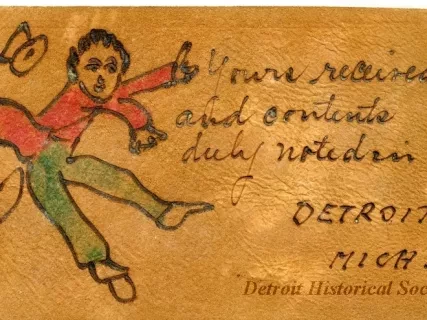 Yours received
and contents
duly noted in
DETROIT
MICH.
Detroit Historical Soc